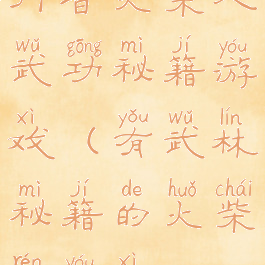 wǔ gōng mì jí yóu
武功秘籍游
xì yǒu wǔ lín
戏（有武林
mì jí de huǒ chái
秘籍的火柴
rén yóu xì